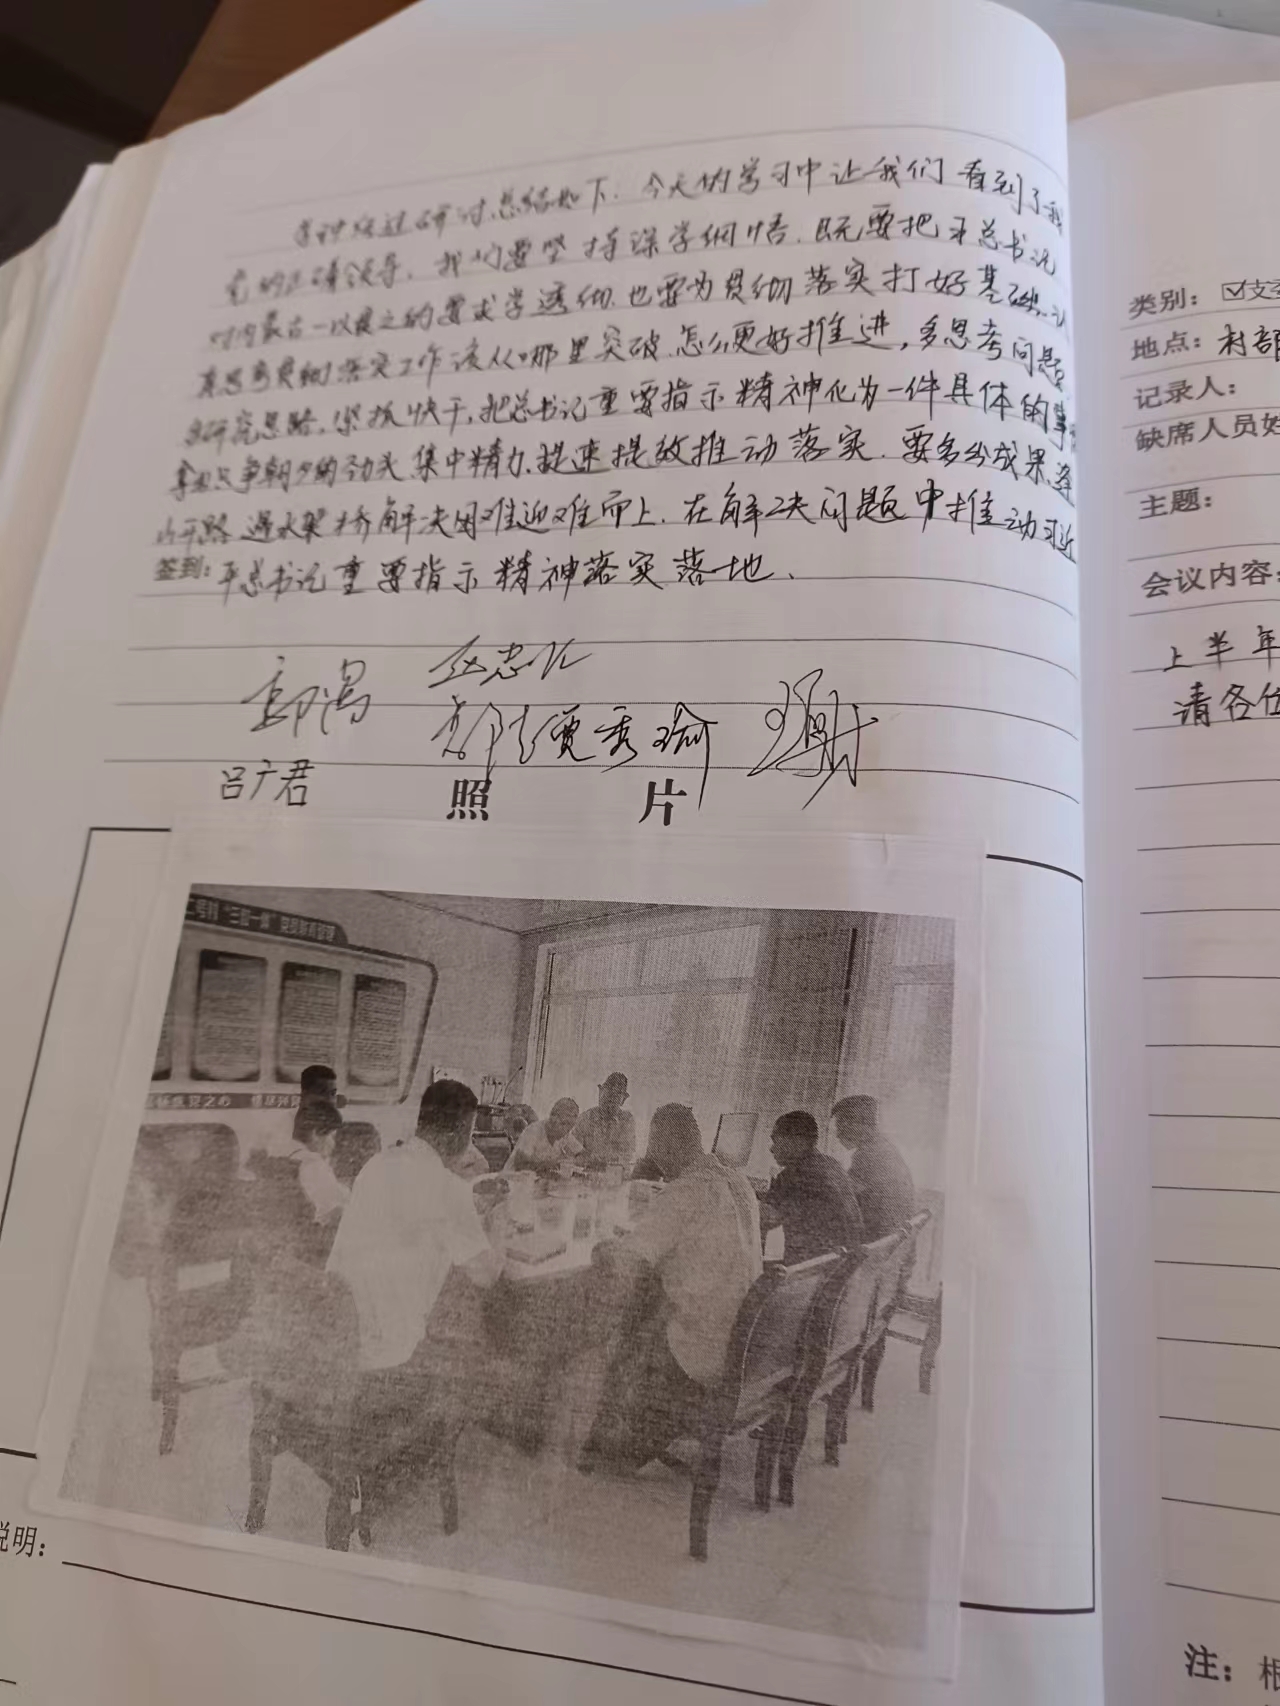 研讨,总结如下:今天的学习中让我们看到了我
党的正确领导,我们要坚持深学细悟,既要把习总书记
一以贯之的要求学透彻,也要为贯彻落实打好基础,认
真思考贯彻落实工作该从哪里突破,怎么更好推进,多思考问题
多研究思路,紧抓快干,把总书记重要指示精神化为一件件具体的事
拿出只争朝夕的劲头,集中精力,提速提效推动落实,要多分成果,逢
山开路 遇水架桥 解决困难迎难而上,在解决问题中推动习近
签到:平总书记重要指示精神落实落地.
郭
贾秀瑜
吕广君
照 片
党员教育管理
说明:
类别: ☑支
地点:村部
记录人:
缺席人员姓
主题:
会议内容:
上半年
请各位
注:根